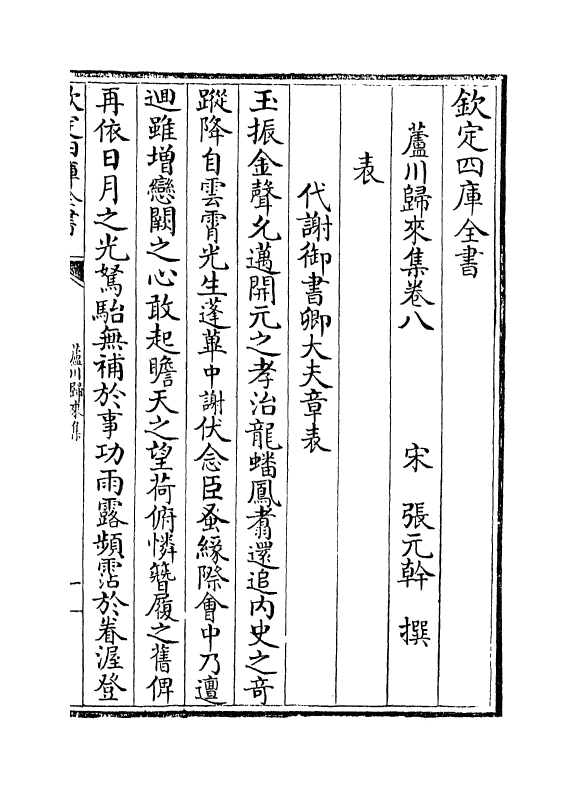 欽定四庫全書
蘆川歸來集卷八
宋 張元幹 撰
表
代謝御書卿大夫章表
玉振金聲允邁開元之孝治龍蟠鳳翥還追内史之奇
蹤降自雲霄光生蓬蓽中謝伏念臣蚤緣際會中乃邅
迴雖增戀闕之心敢起瞻天之望荷俯憐簪履之舊俾
再依日月之光駑駘無補於事功雨露頻霑於眷渥登
欽定四庫全書
蘆川歸來集
一